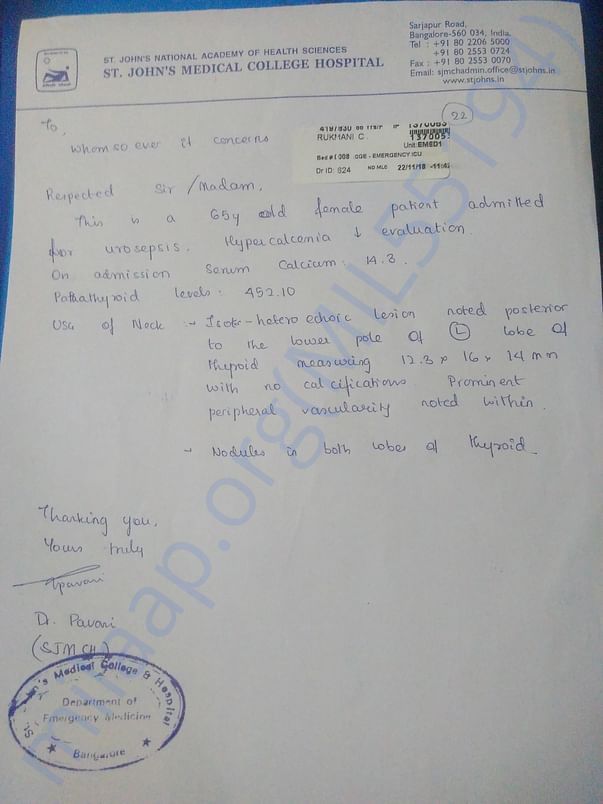 ST. JOHN'S NATIONAL ACADEMY OF HEALTH SCIENCES
ST. JOHN'S MEDICAL COLLEGE HOSPITAL
Sarjapur Road,
Bangalore-560 034, India.
Tel : +91 80 2206 5000
+91 80 2553 0724
Fax : +91 80 2553 0070
Email: sjmchadmin.office@stjohns.in
www.stjohns.in
22
RUKMANI C
137005
Unit:EMED1
Bed # 008 GGE - EMERGENCY ICU
Dr ID: 824 NO MLC 22/11/18
To,
Whom so ever it concerns
Respected Sir / Madam,
This is a 65y old female patient admitted
for urosepsis. Hypercalcemia ↓ evaluation.
On admission Serum Calcium : 14.3.
Pathathyroid levels : 452.10
USG of Neck :- Iso-hetero echoic lesion noted posterior
to the lower pole of L lobe of
thyroid measuring 12.3 x 16 x 14 mm
with no calcifications. Prominent
peripheral vascularity noted within.
- Nodules in both lobes of thyroid.
Thanking you,
Yours truly
Pavani
Dr. Pavani
(SJMCH)
St. John's Medical College & Hospital
Department of
Emergency Medicine
Bangalore
milaap.org(MIL555192)